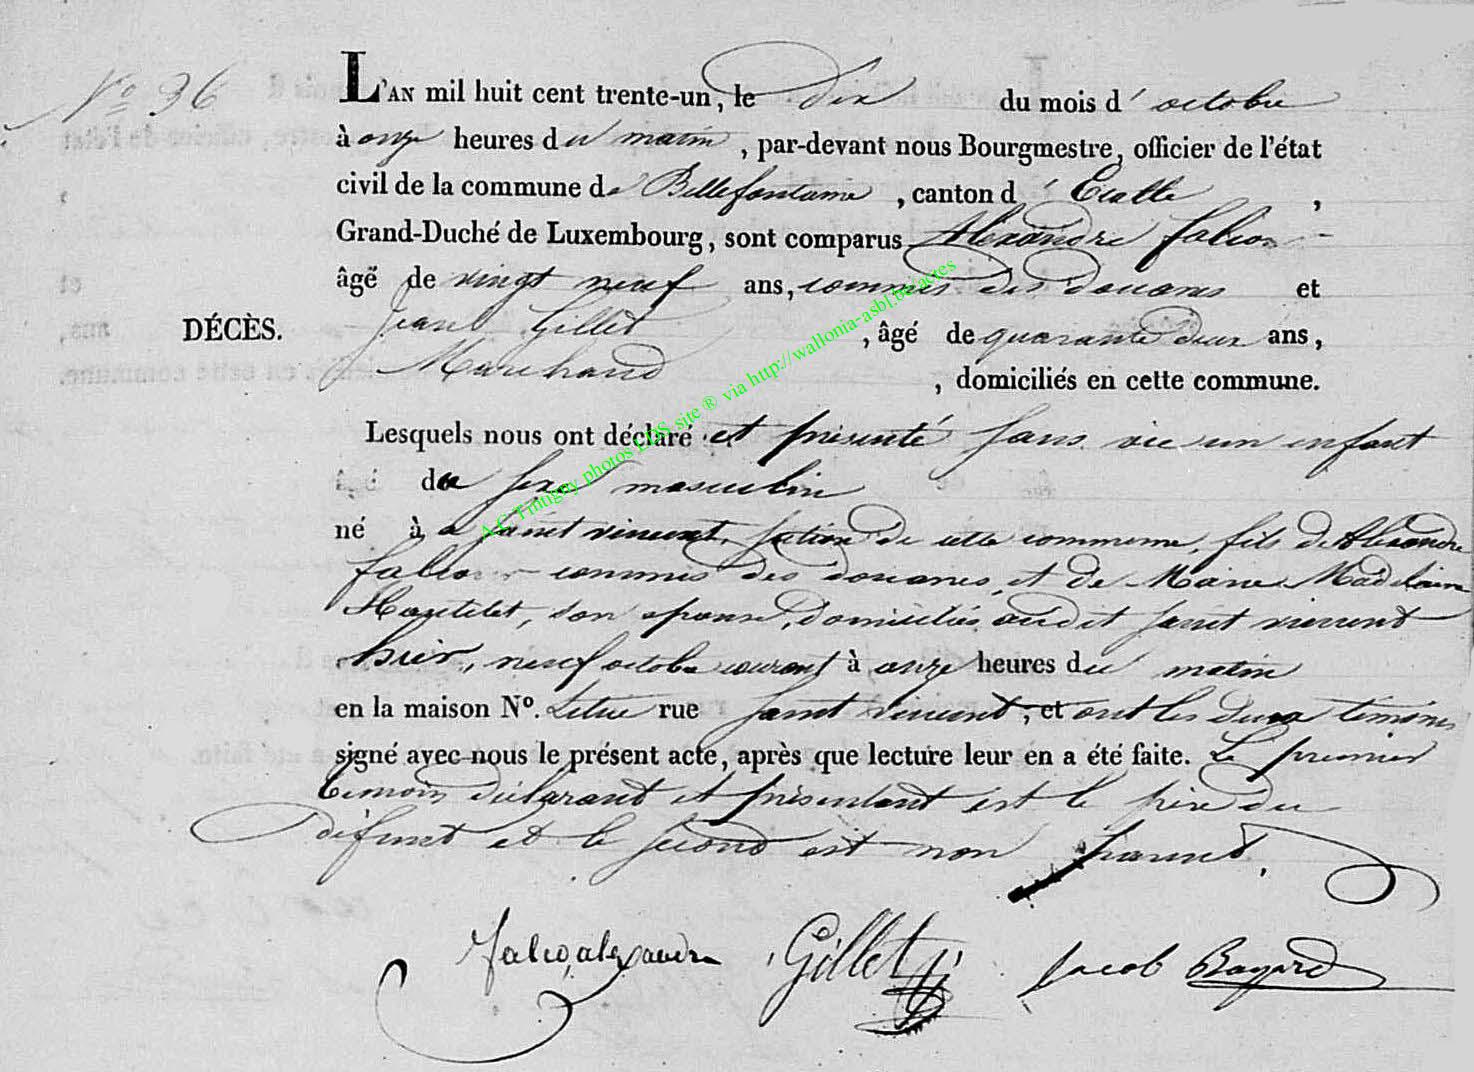 No 36
L'AN mil huit cent trente-un, le dix du mois d' octobre
à onze heures du matin, par-devant nous Bourgmestre, officier de l'état
civil de la commune de Bellefontaine, canton d' Etalle,
Grand-Duché de Luxembourg, sont comparus Alexandre falcon
âgé de vingt neuf ans, commis des douanes et
DÉCÈS. Jean Gillet, âgé de quarante deux ans,
Marchand, domiciliés en cette commune.
Lesquels nous ont déclaré et présenté sans vie un enfant
du sexe masculin
né à a saint vincent, section de cette commune, fils de Alexandre
falcon commis des douanes, et de Marie Madelaine
son epouse, domiciliés audit saint vincent
hier, neuf octobre courant à onze heures du matin
en la maison No. Lettre rue saint vincent, et ont les deux temoins
signé avec nous le présent acte, après que lecture leur en a été faite. Le premier
temoin déclarant et présentant est le père du
défunt et le second est non parent.
falco, alexandre Gillet Jacob Bayard
A.C Tintigny photos LDS site ® via http://wallonia-asbl.be/actes